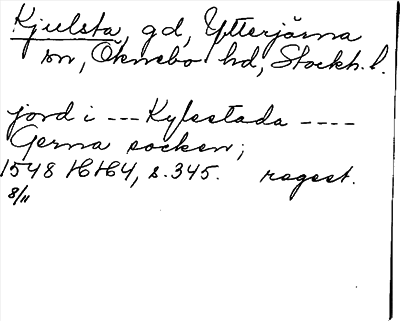 Kjulsta, gd, Ytterjärna
sn, Öknebo hd, Stockh. l.
jord i --- Kylestada ----
Gerna socken;
1548 HH4, s. 345. ragest.
8/11